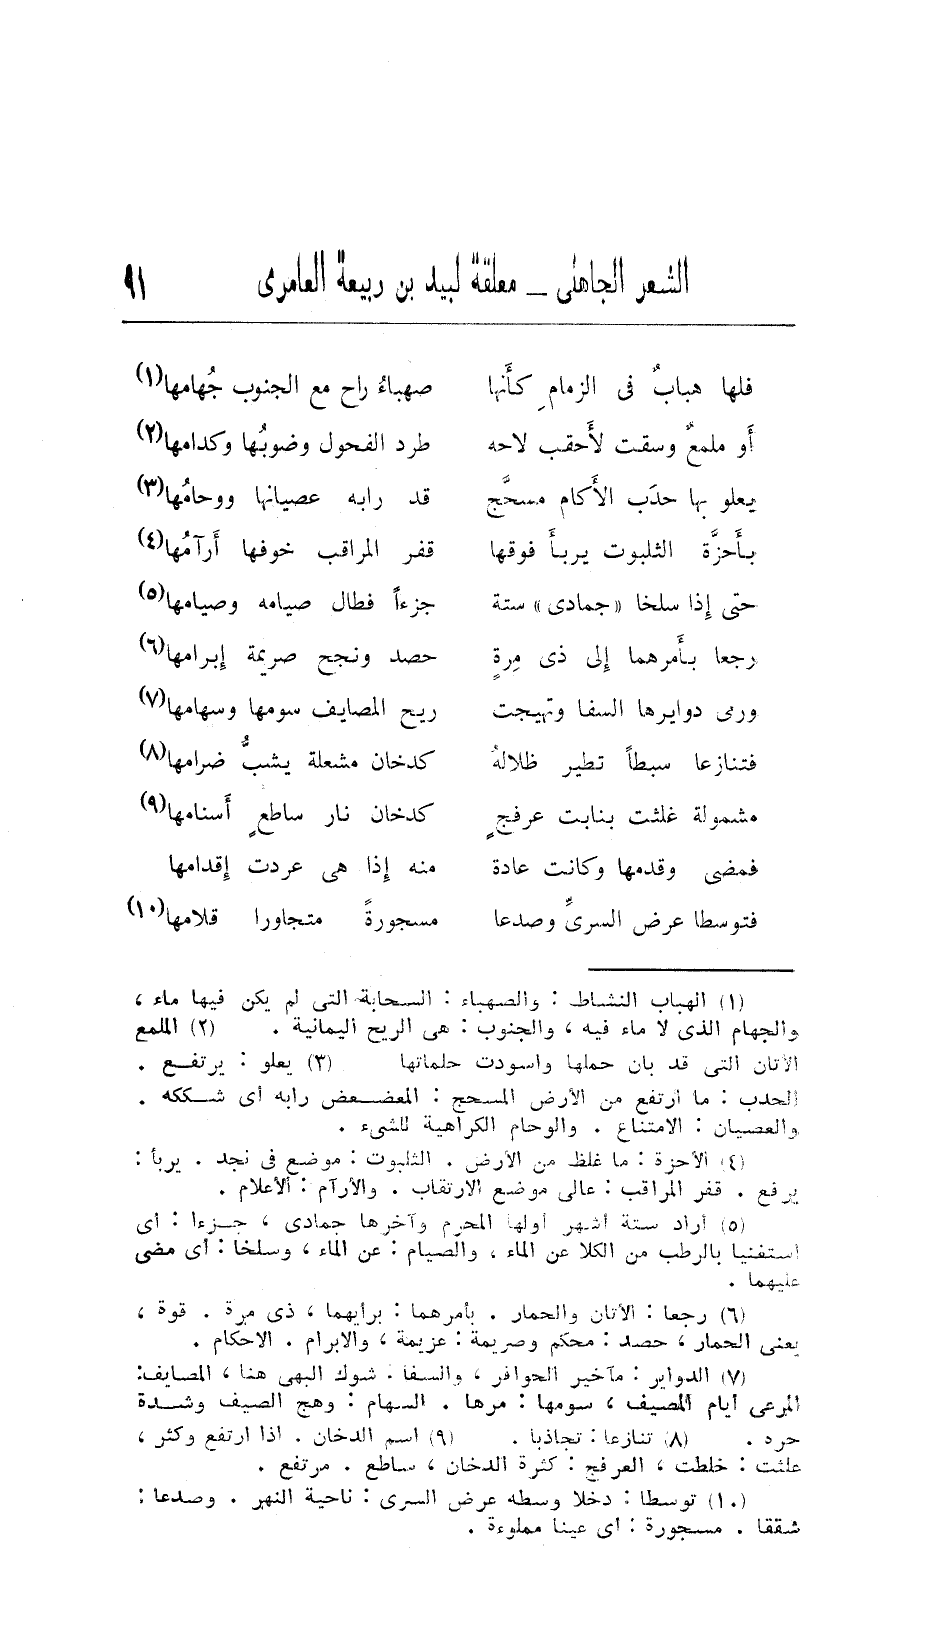 الشعر الجاهلى ــ معلقة لبيد بن ربيعة العامرى ٩١
فلها هبابٌ فى الزمامِ كأَنها صهباءُ راح مع الجنوب جُهامها(١)
أَو ملمعٌ وسقت لأَحقب لاحه طرد الفحول وضوبُها وكدامها(٢)
يعلو بها حدَب الأَكام مسحَّج قد رابه عصيانها ووحامُها(٣)
بأَحزَّة الثلبوت يربأَ فوقها قفر المراقب خوفها أَرآمُها(٤)
حتى إِذا سلخا «جمادى» ستة جزءاً فطال صيامه وصيامها(٥)
رجعا بأَمرهما إِلى ذى مِرةٍ حصد ونجح صريمة إِبرامها(٦)
ورمى دوايرها السفا وتهيجت ريح المصايف سومها وسهامها(٧)
فتنازعا سبطاً تطير ظلالهُ كدخان مشعلة يشبُّ ضرامها(٨)
مشمولة غلثت بنابت عرفجٍ كدخان نار ساطعٍ أَسنامها(٩)
فمضى وقدمها وكانت عادة منه إِذا هى عردت إِقدامها
فتوسطا عرض السرىِّ وصدعا مسجورةً متجاورا قلامها(١٠)
(١) الهباب النشاط : والصهباء : السحابة التى لم يكن فيها ماء ،
والجهام الذى لا ماء فيه ، والجنوب : هى الريح اليمانية . (٢) الملمع
الأتان التى قد بان حملها واسودت حلماتها (٣) يعلو : يرتفع .
الحدب : ما ارتفع من الأرض المسحج : المعضعض رابه أى شككه .
والعصيان : الامتناع . والوحام الكراهية للشىء .
(٤) الأحزة : ما غلظ من الأرض . الثلبوت : موضع فى نجد . يربأ :
يرفع . قفر المراقب : عالى موضع الارتقاب . والأرآم : الأعلام .
(٥) أراد ستة أشهر أولها المحرم وآخرها جمادى ، جزءا : أى
استغنيا بالرطب من الكلا عن الماء ، والصيام : عن الماء ، وسلخا : أى مضى
عليهما .
(٦) رجعا : الأتان والحمار . بأمرهما : برأيهما ، ذى مرة . قوة ،
يعنى الحمار ، حصد : محكم وصريمة : عزيمة ، والابرام . الاحكام .
(٧) الدواير : مآخير الحوافر ، والسفا . شوك البهى هنا ، المصايف :
المرعى أيام المصيف ، سومها : مرها . السهام : وهج الصيف وشدة
حره . (٨) تنازعا : تجاذبا . (٩) اسم الدخان . اذا ارتفع وكثر ،
علثت : خلطت ، العرفج : كثرة الدخان ، ساطع . مرتفع .
(١٠) توسطا : دخلا وسطه عرض السرى : ناحية النهر . وصدعا :
شققا . مسجورة : أى عينا مملوءة .